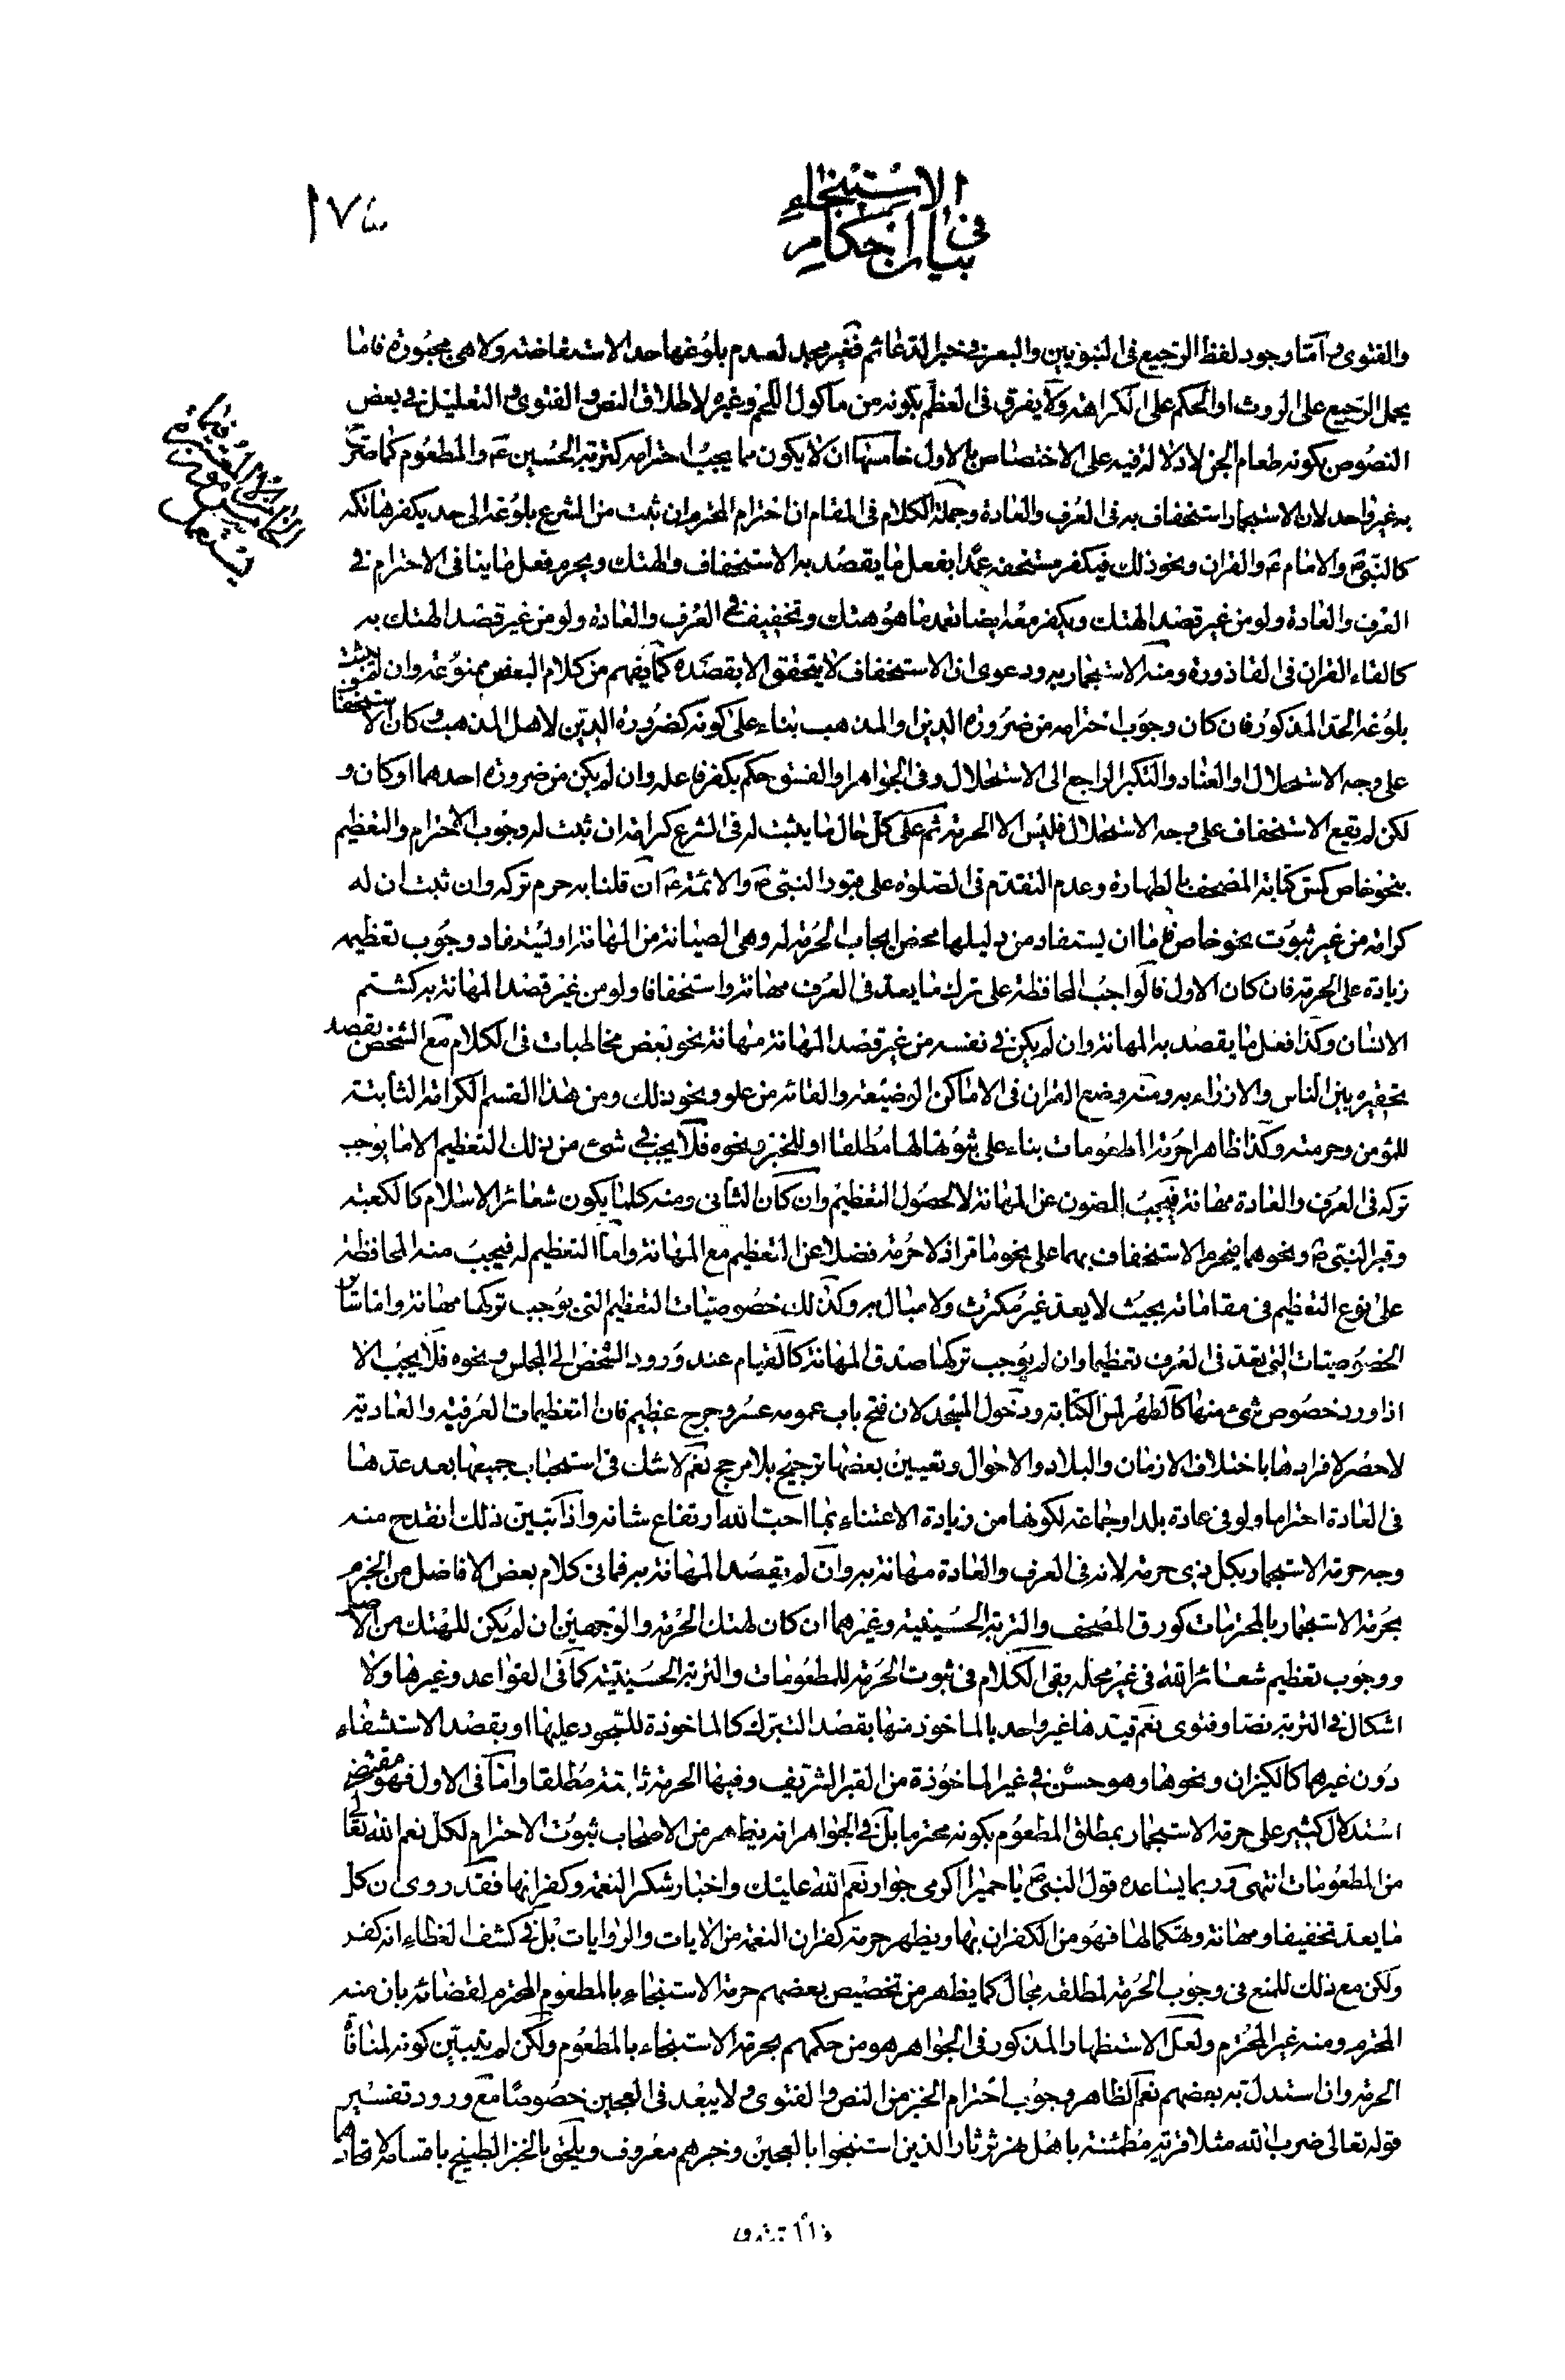 في بيان احكام الاستنجاء
١٧
والفتوى وآمّا وجود لفظ الرجيع فى النبويين والبعر في خبر الدعائم فغير مجد لعدم بلوغها حد الاستفاضة ولا هى مجبورة فاما
يحمل الرجيع على الروث او الحكم على الكراهة ولا يفرق فى العظم بكونه من مأكول اللحم وغيره لاطلاق النص والفتوى والتعليل في بعض
النصوص بكونه طعام الجن لا دلالة فيه على الاختصاص بالاول خامسها ان لا يكون مما يجب احترامه كتربة الحسين ع والمطعوم كما صرّح
به غير واحد لان الاستجمار استخفاف به فى العرف والعادة وجملة الكلام فى المقام ان احترام المحترم ان ثبت من الشرع بلوغه الى حد يكفر هاتكه
كالنبى ص والامام ع والقران ونحو ذلك فيكفر مستخفه عمدا بفعل ما يقصد به الاستخفاف والهتك ويحرم فعل ما ينافى الاحترام في
العرف والعادة ولو من غير قصد الهتك ويكفر معه ايضا تعمد ما هو هتك وتخفيف في العرف والعادة ولو من غير قصد الهتك به
كالقاء القران فى القاذورة ومنه الاستجمار به ودعوى ان الاستخفاف لا يتحقق الا بقصده كما يفهم من كلام البعض ممنوعة وان لم يثبت
بلوغه الحد المذكور فان كان وجوب احترامه من ضرورة الدين او المذهب بناء على كونه كضرورة الدين لاهل المذهب وكان الاستخفاف
على وجه الاستحلال او العناد والتكبر الراجع الى الاستحلال وفى الجواهر او الفسق حكم بكفر فاعله وان لم يكن من ضرورة احدهما او كان و
لكن لم يقع الاستخفاف على وجه الاستحلال فليس الا الحرمة ثم على كل حال ما يثبت له فى الشرع كرامة ان ثبت له وجوب الاحترام والتعظيم
بنحو خاص كمس كتابة المصحف بالطهارة وعدم التقدم فى الصلوة على قبور النبى ص والائمة ع ان قلنا به حرم تركه وان ثبت ان له
كرامة من غير ثبوت نحو خاص فاما ان يستفاد من دليلها محض ايجاب الحرمة له وهى الصيانة من المهانة او يستفاد وجوب تعظيمه
زيادة على الحرمة فان كان الاول فالواجب المحافظة على ترك ما يعد فى العرف مهانة واستخفافا ولو من غير قصد المهانة به كشتم
الانسان وكذا فعل ما يقصد به المهانة وان لم يكن في نفسه من غير قصد المهانة مهانة نحو بعض مخاطبات فى الكلام مع الشخص بقصد
تحقيره بين الناس والازراء به ومنه وضع القران فى الاماكن الوضيعة والقائه من علو ونحو ذلك ومن هذا القسم الكرامة الثابتة
للمؤمن وحرمته وكذا ظاهرا حرمة المطعومات بناء على ثبوتها لها مطلقا او للخبز ونحوه فلا يجب في شئ من ذلك التعظيم الا ما يوجب
تركه فى العرف والعادة مهانة فيجب للصون عن المهانة لا لحصول التعظيم وان كان الثانى ومنه كلما يكون شعائر الاسلام كالكعبة
وقبر النبى ص ونحوهما فيحرم الاستخفاف بهما على نحو ما مر اذ لا حرمة فضلا عن التعظيم مع المهانة واما التعظيم له فيجب منه المحافظة
على نوع التعظيم فى مقاماته بحيث لا يعد غير مكترث ولا مبال به وكذلك خصوصيات التعظيم التى يوجب تركها مهانة واما سائر
الخصوصيات التى تعد فى العرف تعظيما وان لم يوجب تركها صدق المهانة كالقيام عند ورود الشخص الى المجلس ونحوه فلا يجب الا
اذا ورد خصوص شئ منها كالطهر لمس الكتابة ودخول المسجد لان فتح باب عمومه عسر وحرج عظيم فان التعظيمات العرفية والعادية
لا حصر لافرادها باختلاف الازمان والبلاد والاحوال وتعيين بعضها ترجيح بلا مرجح نعم لا شك فى استحباب جميعها بعد عدها
فى العادة احتراما ولو فى عادة بلد او جماعة لكونها من زيادة الاعتناء بما احب الله ارتفاع شانه واذا تبين ذلك انقدح منه
وجه حرمة الاستجمار بكل ذى حرمة لانه فى العرف والعادة مهانة به وان لم يقصد المهانة به فما فى كلام بعض الافاضل من الجزم
بحرمة الاستجمار بالمحترمات كورق المصحف والتربة الحسينية وغيرهما ان كان لهتك الحرمة والوجهين ان لم يكن للهتك من الاصل
ووجوب تعظيم شعائر الله فى غير محله بقى الكلام فى ثبوت الحرمة للمطعومات والتربة الحسينية كما فى القواعد وغيرها ولا
اشكال في التربة نصا وفتوى نعم قيدها غير واحد بالماخوذ منها بقصد التبرك كالماخوذة للسجود عليها او بقصد الاستشفاء
دون غيرهما كالكيزان ونحوها وهو حسن في غير الماخوذة من القبر الشريف وفيها الحرمة ثابتة مطلقا واما فى الاول فهو مقتضى
استدلال كثير على حرمة الاستجمار بمطلق المطعوم بكونه محترما بل في الجواهر انه يظهر من الاصحاب ثبوت الاحترام لكل نعم الله تعالى
من المطعومات انتهى وربما يساعده قول النبى ص يا حميرا اكرمى جوار نعم الله عليك واخبار شكر النعمة وكفرانها فقد روى ان كل
ما يعد تخفيفا ومهانة وهتكا لها فهو من الكفران بها ويظهر حرمة كفران النعمة من الايات والروايات بل في كشف الغطاء انه كفر
ولكن مع ذلك للمنع فى وجوب الحرمة لمطلقه مجال كما يظهر من تخصيص بعضهم حرمة الاستنجاء بالمطعوم المحترم لقضائه بان منه
المحترم ومنه غير المحترم ولعل الاستظهار المذكور فى الجواهر هو من حكمهم بحرمة الاستنجاء بالمطعوم ولكن لم يتبين كونه لمنافاة
الحرمة وان استدل به بعضهم نعم الظاهر وجوب احترام الخبز من النص والفتوى ولا يبعد فى العجين خصوصا مع ورود تفسير
قوله تعالى ضرب الله مثلا قرية مطمئنة باهل نهر ثرثار الذين استنجوا بالعجين وخبرهم معروف ويلحق بالخبز الطبيخ باقسامه لاتحادهما